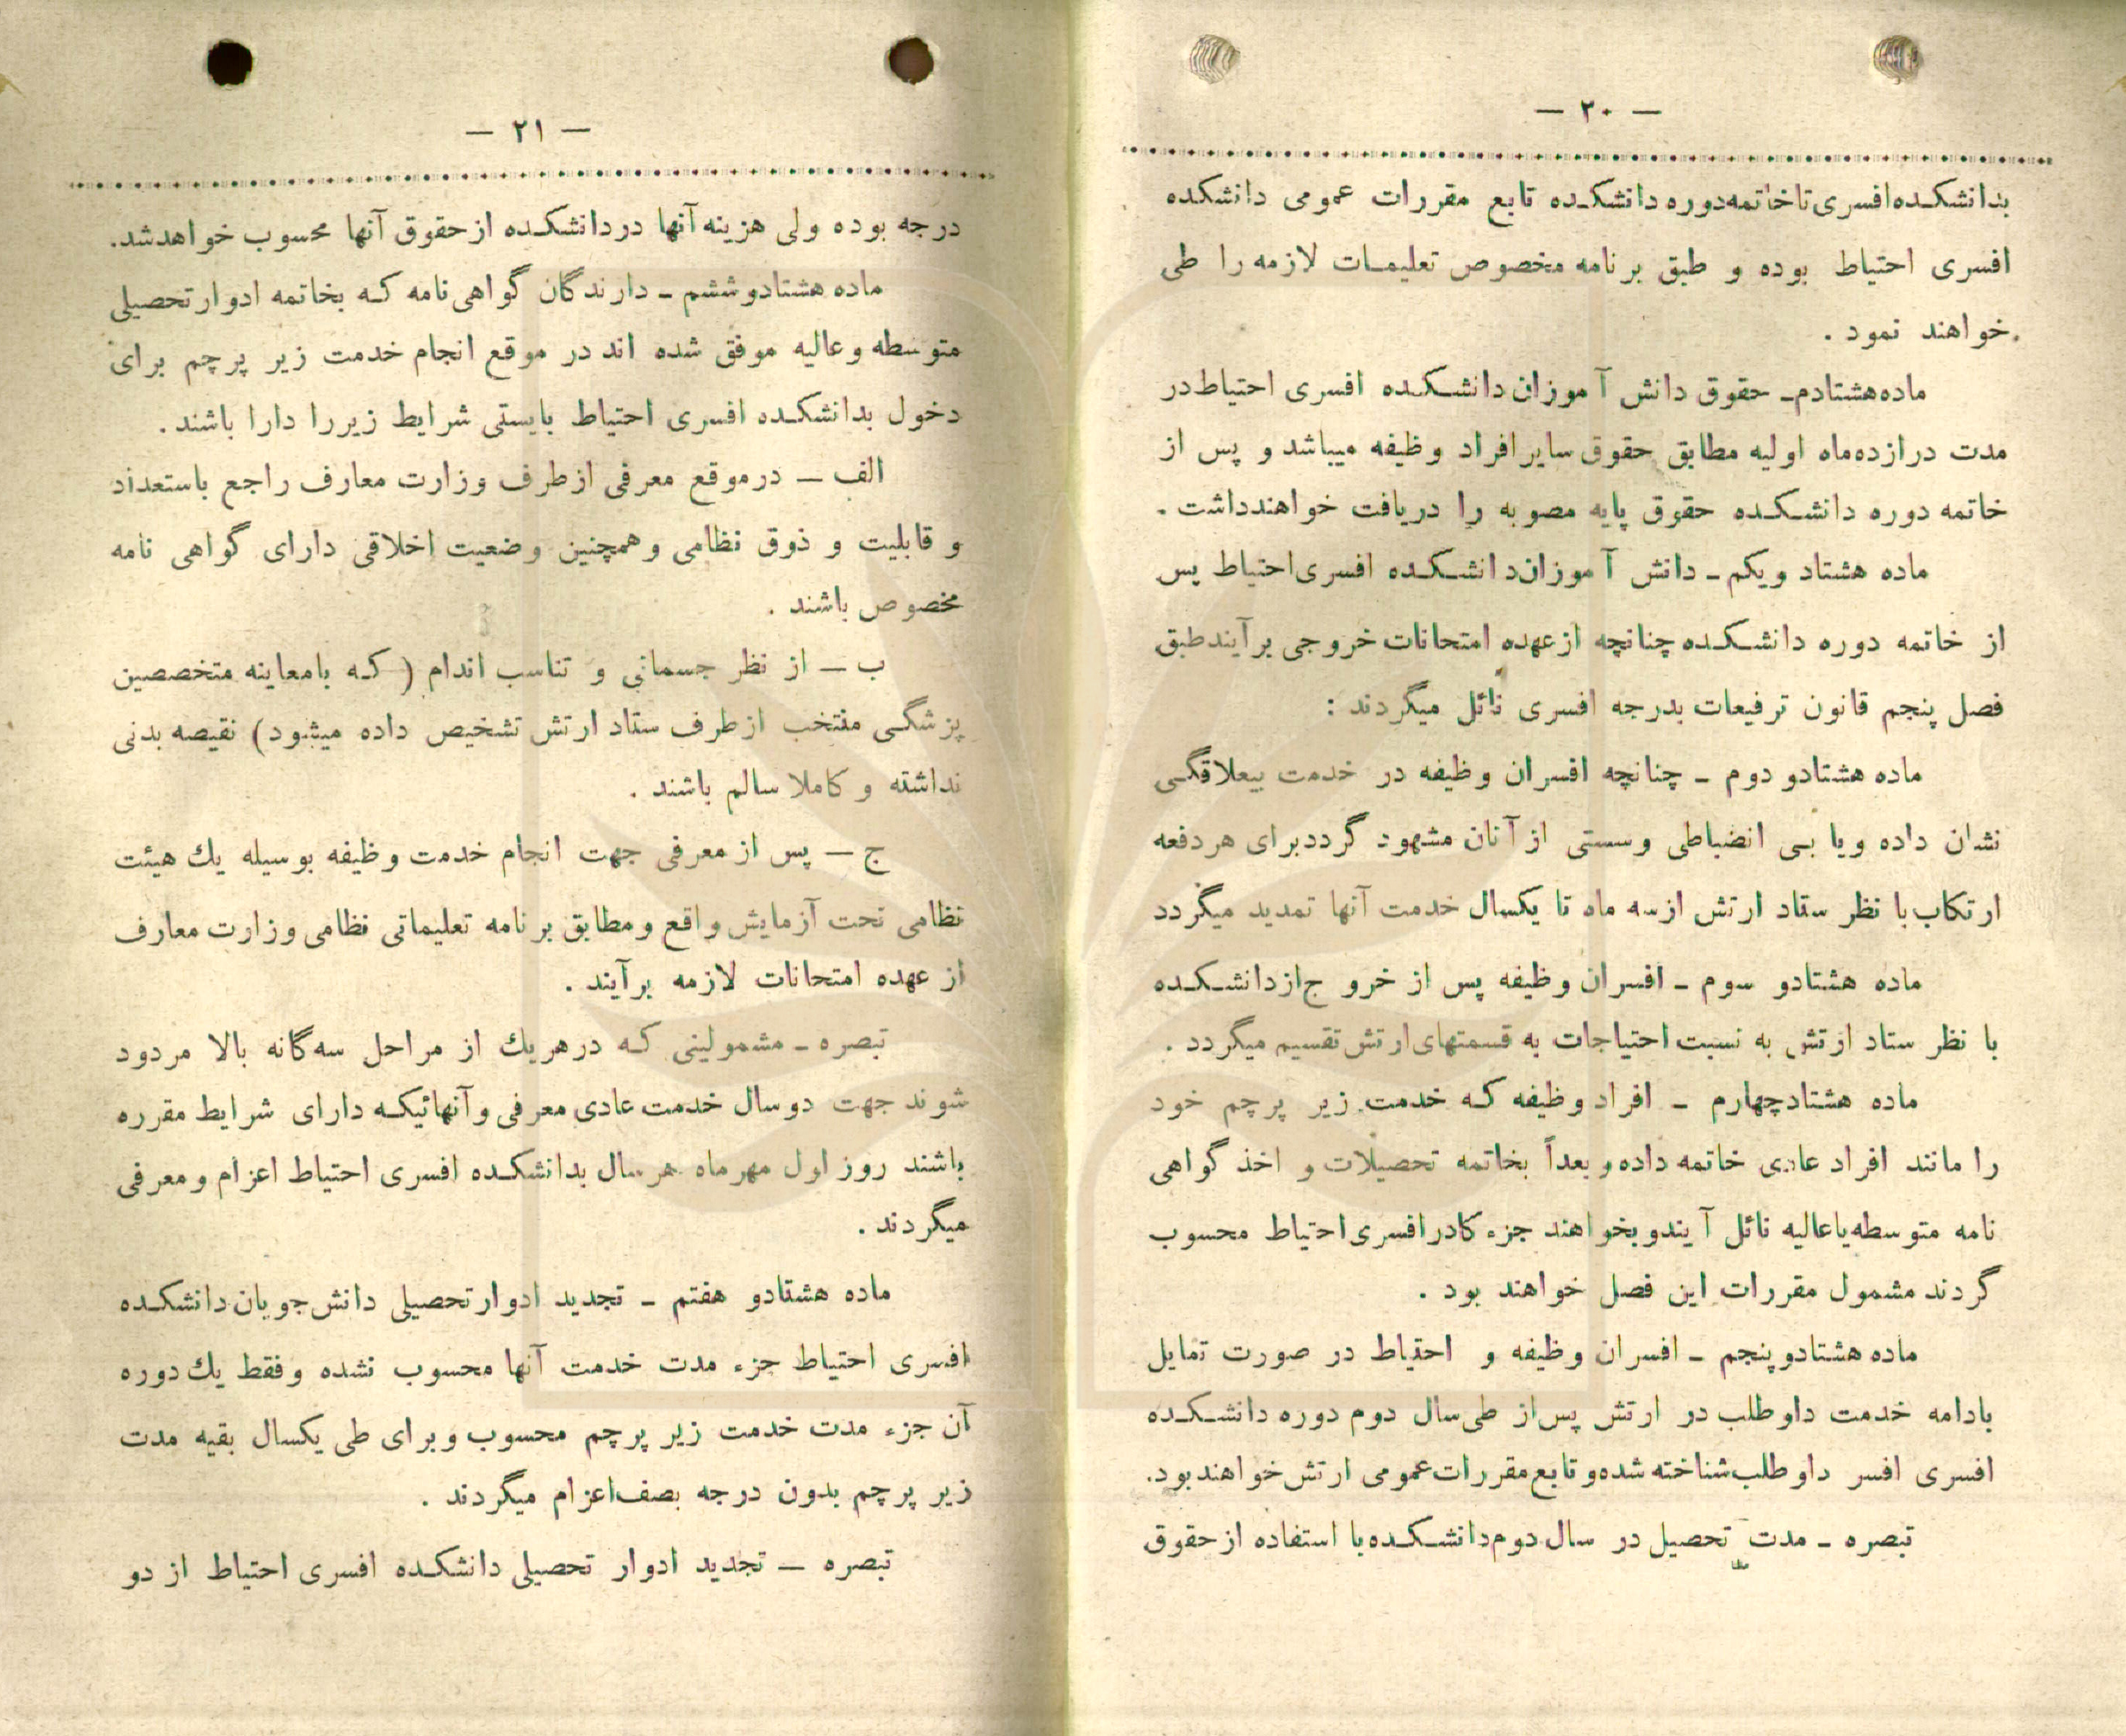 — ۲۰ —
بدانشکده افسری تا خاتمه دوره دانشکده تابع مقررات عمومی دانشکده
افسری احتیاط بوده و طبق برنامه مخصوص تعلیمات لازمه را طی
خواهند نمود .
ماده هشتادم ـ حقوق دانش آموزان دانشکده افسری احتیاط در
مدت درازده ماه اولیه مطابق حقوق سایر افراد وظیفه میباشد و پس از
خاتمه دوره دانشکده حقوق پایه مصوبه را دریافت خواهند داشت .
ماده هشتاد و یکم ـ دانش آموزان دانشکده افسری احتیاط پس
از خاتمه دوره دانشکده چنانچه از عهده امتحانات خروجی برآیند طبق
فصل پنجم قانون ترفیعات بدرجه افسری نائل میگردند :
ماده هشتادو دوم ـ چنانچه افسران وظیفه در خدمت بیعلاقگی
نشان داده ویا بی انضباطی وسستی از آنان مشهود گردد برای هر دفعه
ارتکاب با نظر ستاد ارتش از سه ماه تا یکسال خدمت آنها تمدید میگردد
ماده هشتادو سوم ـ افسران وظیفه پس از خروج از دانشکده
با نظر ستاد ارتش به نسبت احتیاجات به قسمتهای ارتش تقسیم میگردد .
ماده هشتادچهارم ـ افراد وظیفه که خدمت زیر پرچم خود
را مانند افراد عادی خاتمه داده و بعداً بخاتمه تحصیلات و اخذ گواهی
نامه متوسطه یا عالیه نائل آیند و بخواهند جزء کادر افسری احتیاط محسوب
گردند مشمول مقررات این فصل خواهند بود .
ماده هشتادو پنجم ـ افسران وظیفه و احتیاط در صورت تمایل
بادامه خدمت داوطلب در ارتش پس از طی سال دوم دوره دانشکده
افسری افسر داوطلب شناخته شده و تابع مقررات عمومی ارتش خواهند بود.
تبصره ـ مدت تحصیل در سال دوم دانشکده با استفاده از حقوق
— ۲۱ —
درجه بوده ولی هزینه آنها در دانشکده از حقوق آنها محسوب خواهد شد.
ماده هشتادو ششم ـ دارندگان گواهی نامه که بخاتمه ادوار تحصیلی
متوسطه و عالیه موفق شده اند در موقع انجام خدمت زیر پرچم برای
دخول بدانشکده افسری احتیاط بایستی شرایط زیر را دارا باشند .
الف ـ در موقع معرفی از طرف وزارت معارف راجع باستعداد
و قابلیت و ذوق نظامی و همچنین وضعیت اخلاقی دارای گواهی نامه
مخصوص باشند .
ب ـ از نظر جسمانی و تناسب اندام ( که بامعاینه متخصصین
پزشگی منتخب از طرف ستاد ارتش تشخیص داده میشود) نقیصه بدنی
نداشته و کاملا سالم باشند .
ج ـ پس از معرفی جهت انجام خدمت وظیفه بوسیله یك هیئت
نظامی تحت آزمایش واقع و مطابق برنامه تعلیماتی نظامی وزارت معارف
از عهده امتحانات لازمه برآیند .
تبصره ـ مشمولینی که در هریك از مراحل سه گانه بالا مردود
شوند جهت دوسال خدمت عادی معرفی و آنهائیکه دارای شرایط مقرره
باشند روز اول مهر ماه هر سال بدانشکده افسری احتیاط اعزام و معرفی
میگردند .
ماده هشتادو هفتم ـ تجدید ادوار تحصیلی دانش جویان دانشکده
افسری احتیاط جزء مدت خدمت آنها محسوب نشده و فقط یك دوره
آن جزء مدت خدمت زیر پرچم محسوب و برای طی یکسال بقیه مدت
زیر پرچم بدون درجه بصف اعزام میگردند .
تبصره ـ تجدید ادوار تحصیلی دانشکده افسری احتیاط از دو